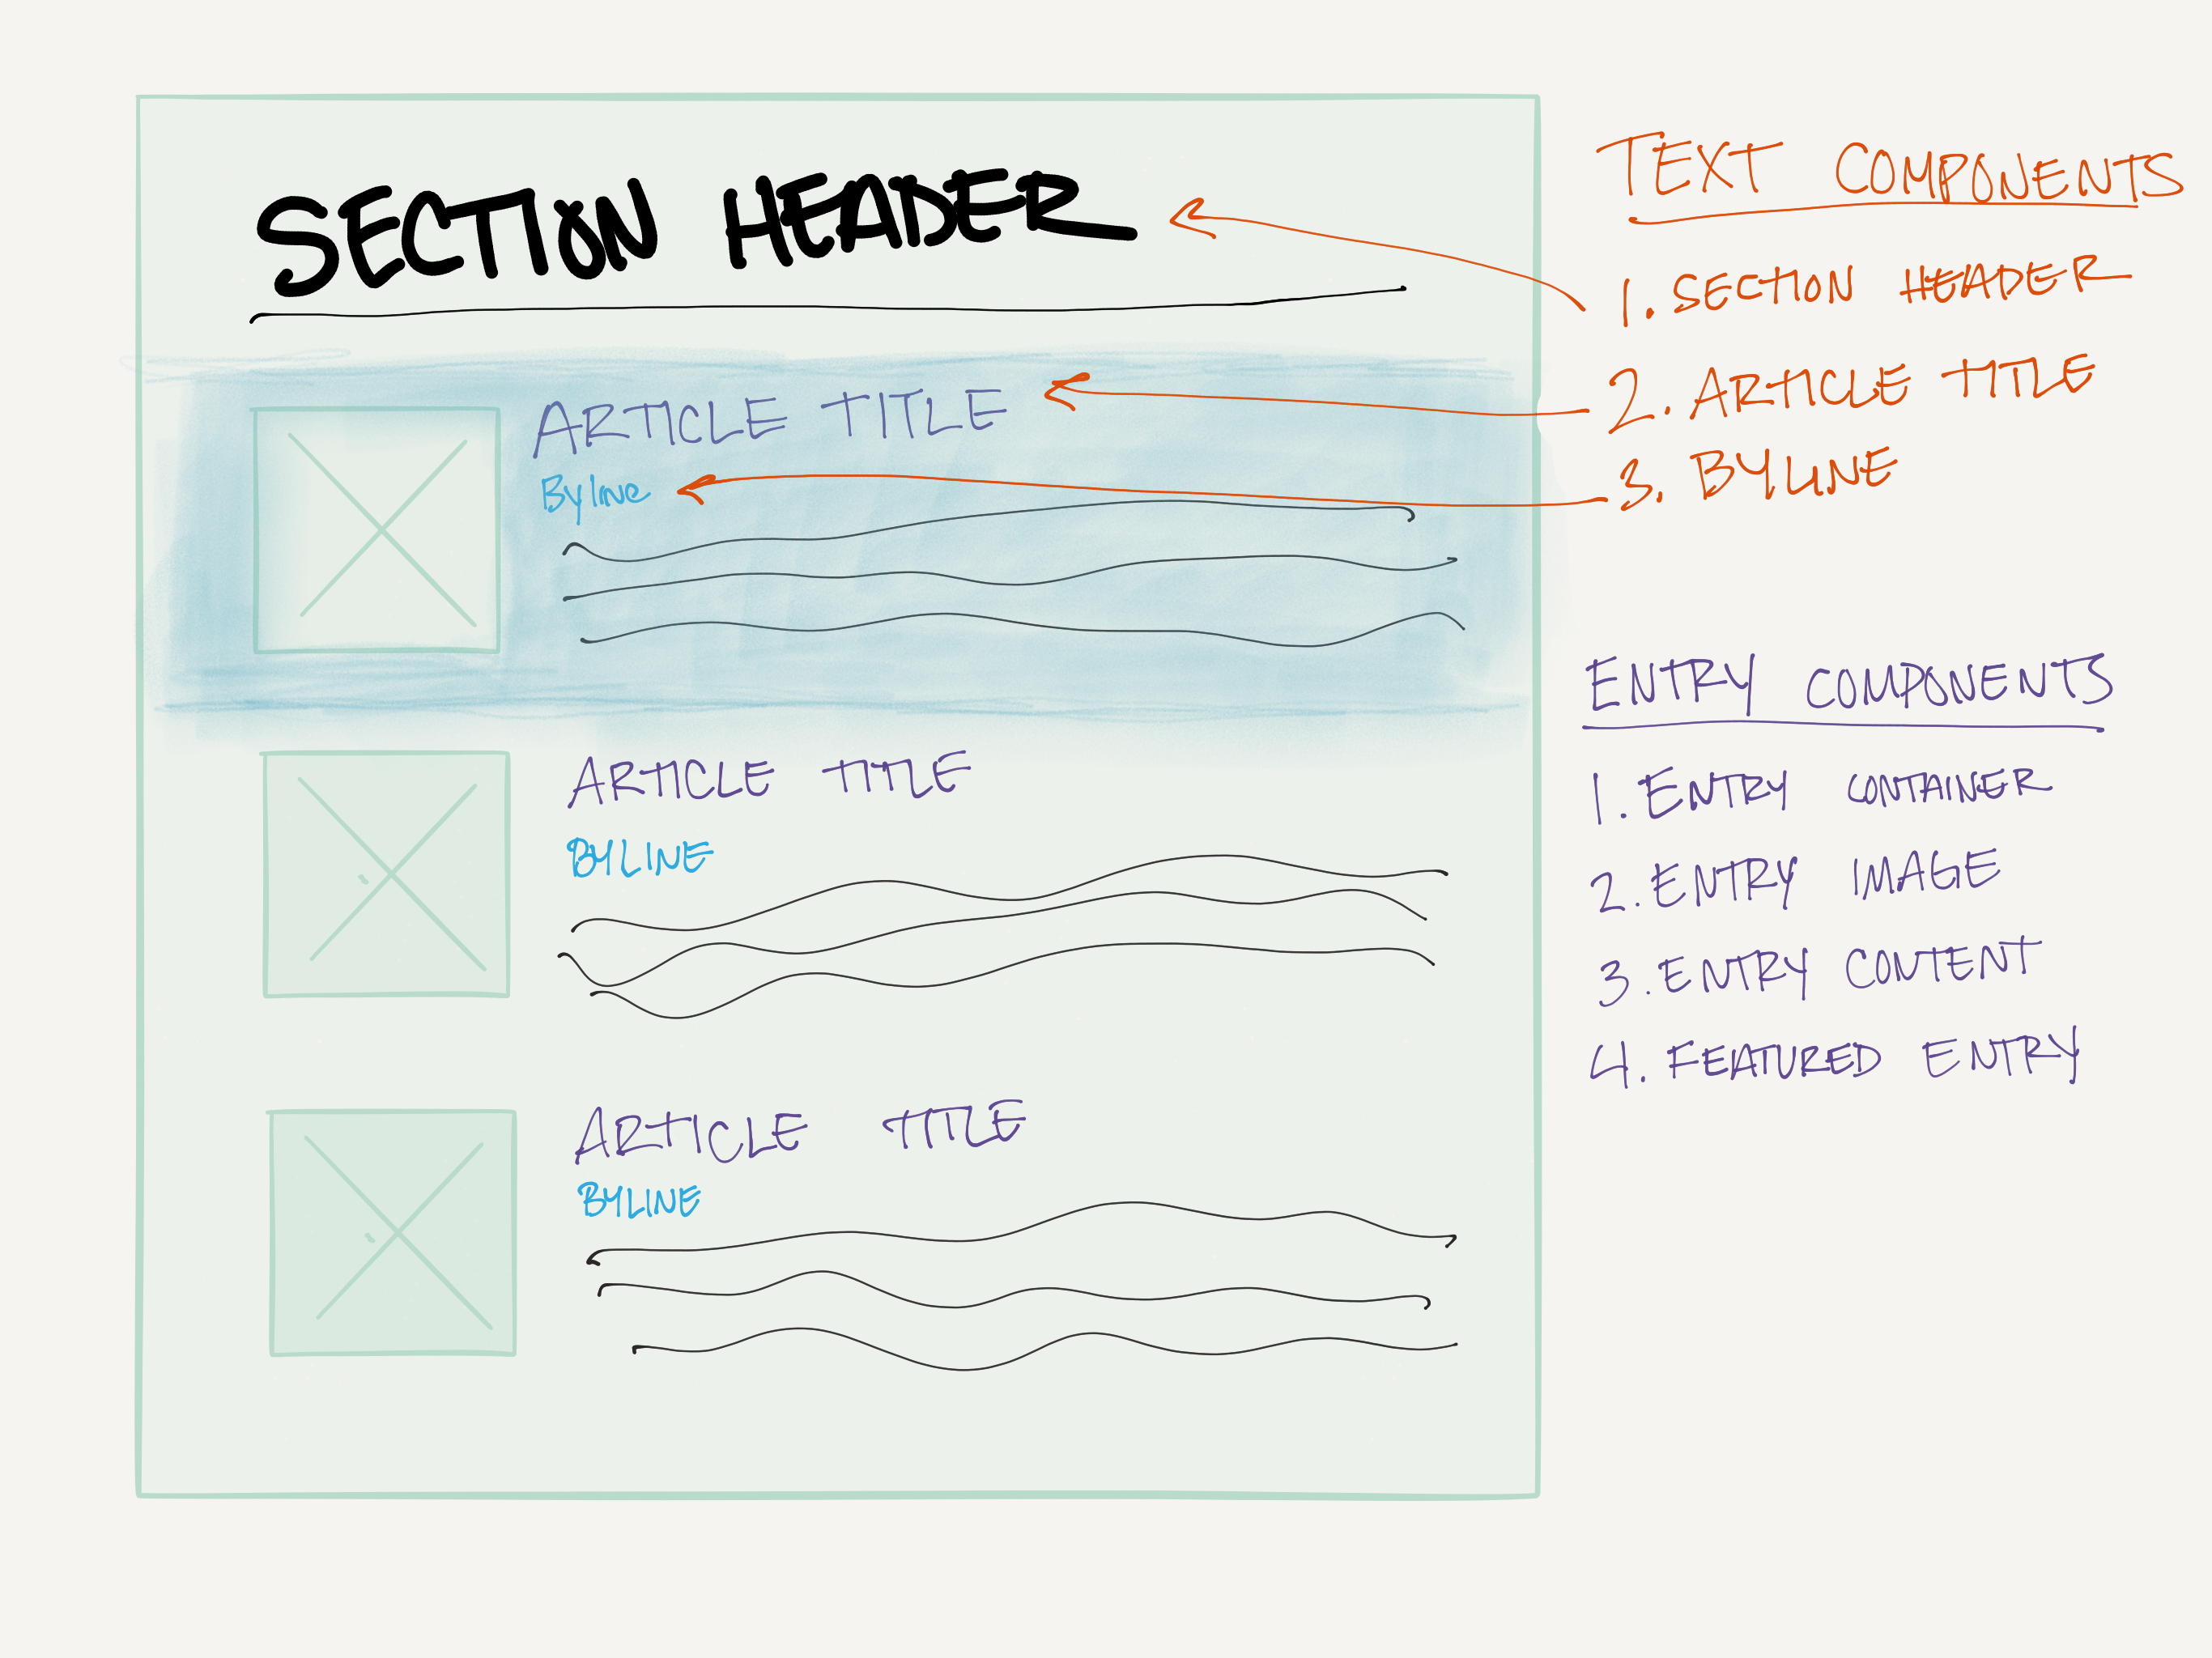 SECTION HEADER
ARTICLE TITLE
Byline
ARTICLE TITLE
BYLINE
ARTICLE TITLE
BYLINE
TEXT COMPONENTS
1. SECTION HEADER
2. ARTICLE TITLE
3. BYLINE
ENTRY COMPONENTS
1. ENTRY CONTAINER
2. ENTRY IMAGE
3. ENTRY CONTENT
4. FEATURED ENTRY